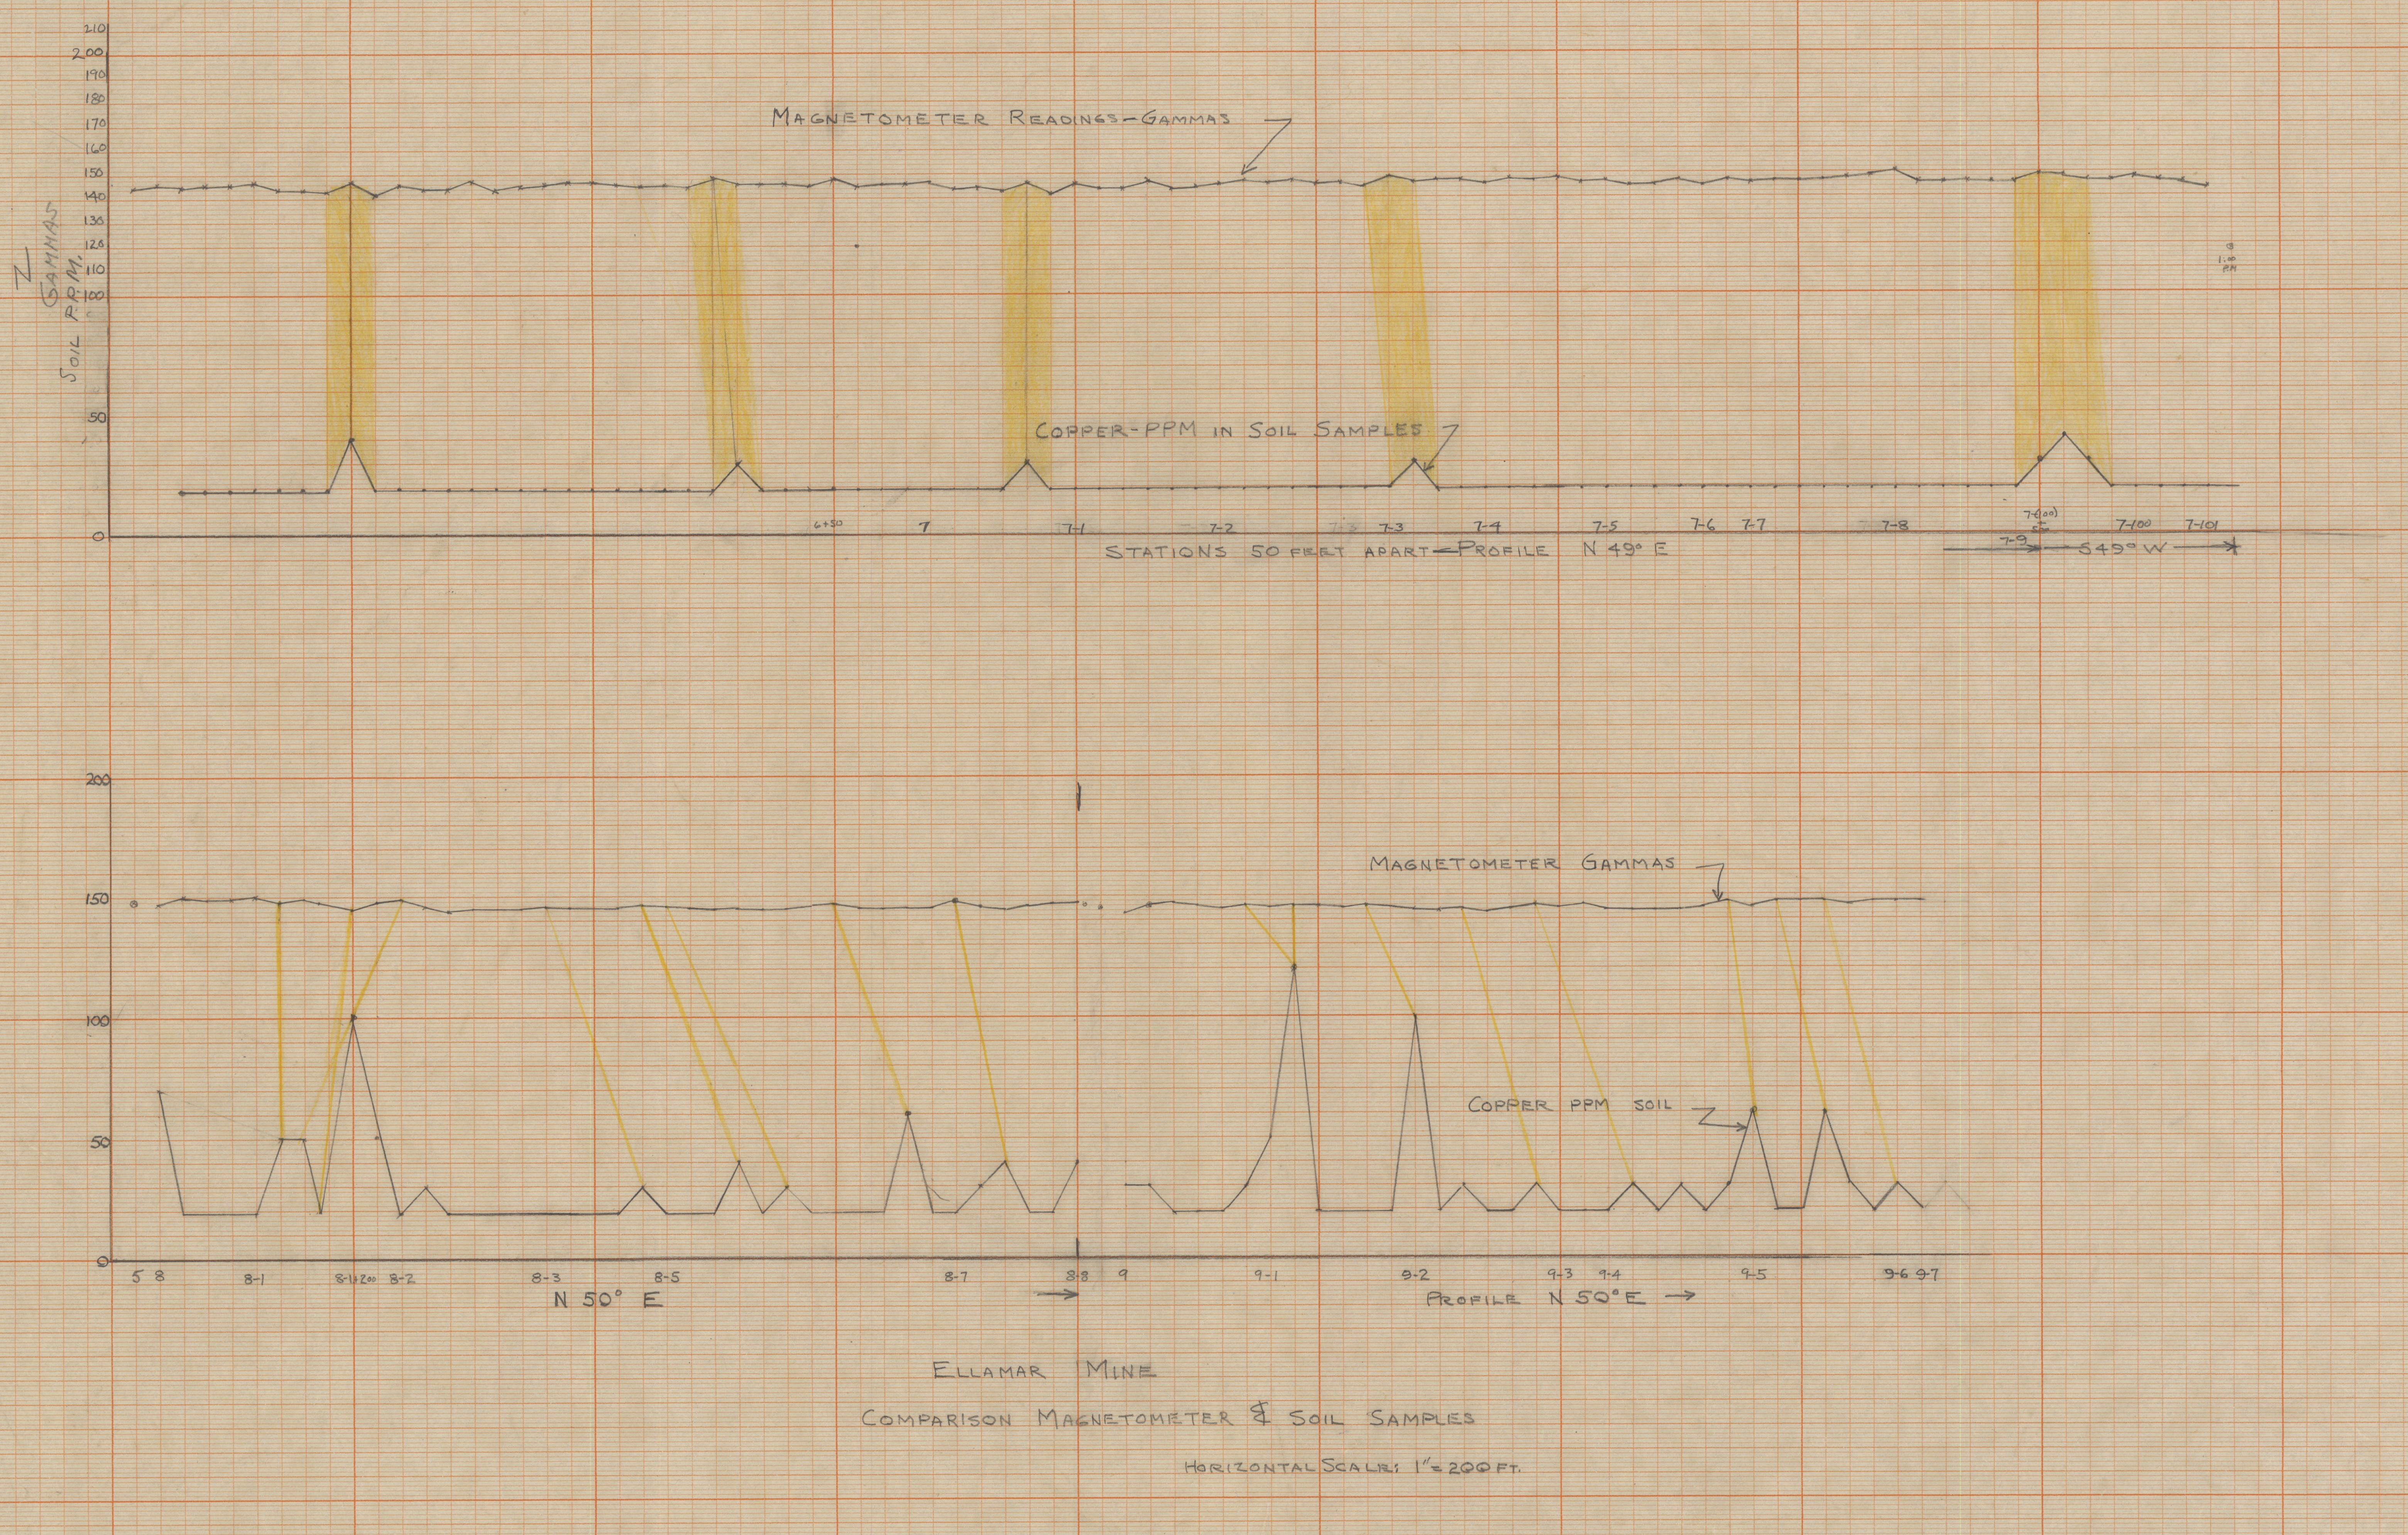 210
200
190
180
170
160
150
140
130
120
110
100
50
0
Z
GAMMAS
SOIL P.P.M.
MAGNETOMETER READINGS-GAMMAS
1:00
PM
COPPER-PPM IN SOIL SAMPLES
6+50 7 7-1 7-2 7-3 7-4 7-5 7-6 7-7 7-8 7-9 7-(100) 7-100 7-101
STATIONS 50 FEET APART-PROFILE N 49° E
S49° W
200
150
100
50
0
MAGNETOMETER GAMMAS
COPPER PPM SOIL
5 8 8-1 8-1+200 8-2 8-3 8-5 8-7 8-8 9 9-1 9-2 9-3 9-4 9-5 9-6 9-7
N 50° E
PROFILE N 50° E
ELLAMAR MINE
COMPARISON MAGNETOMETER & SOIL SAMPLES
HORIZONTAL SCALE: 1"=200 FT.